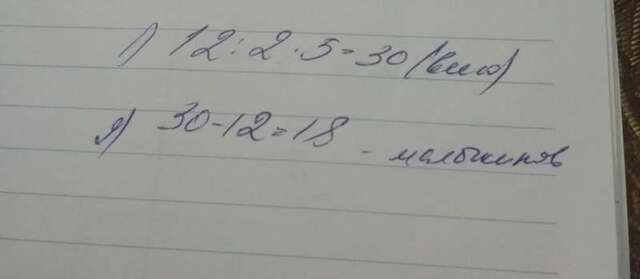 1) 12 : 2 · 5 = 30 (всего)
2) 30 - 12 = 18 - мальчиков